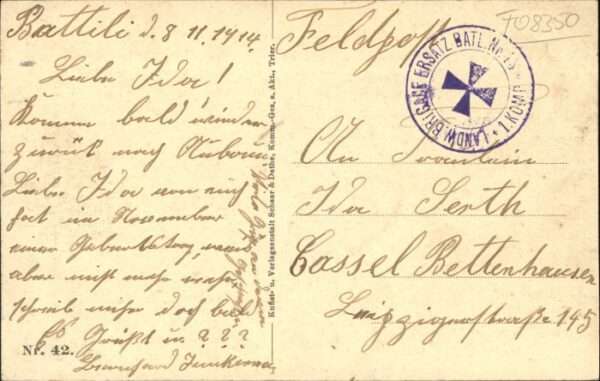 Battili d. 8 11.1914
Liebe Ida!
Kommen bald wieder
zurück nach
Liebe Ida
hat im November
einen Geburtstag,
aber nicht mehr
schreib mir doch bald
Es Grüßt u. ? ? ?
Bernhard
Nr. 42.
Kunst- u. Verlagsanstalt Schaar & Dathe, Komm.-Ges. a. Akt., Trier.
Feldpost
T08350
LANDW. BRIGADE ERSATZ BATL. No
1. KOMP.
An Fräulein
Ida Serth
Cassel Bettenhausen
Leipzigerstraße 145